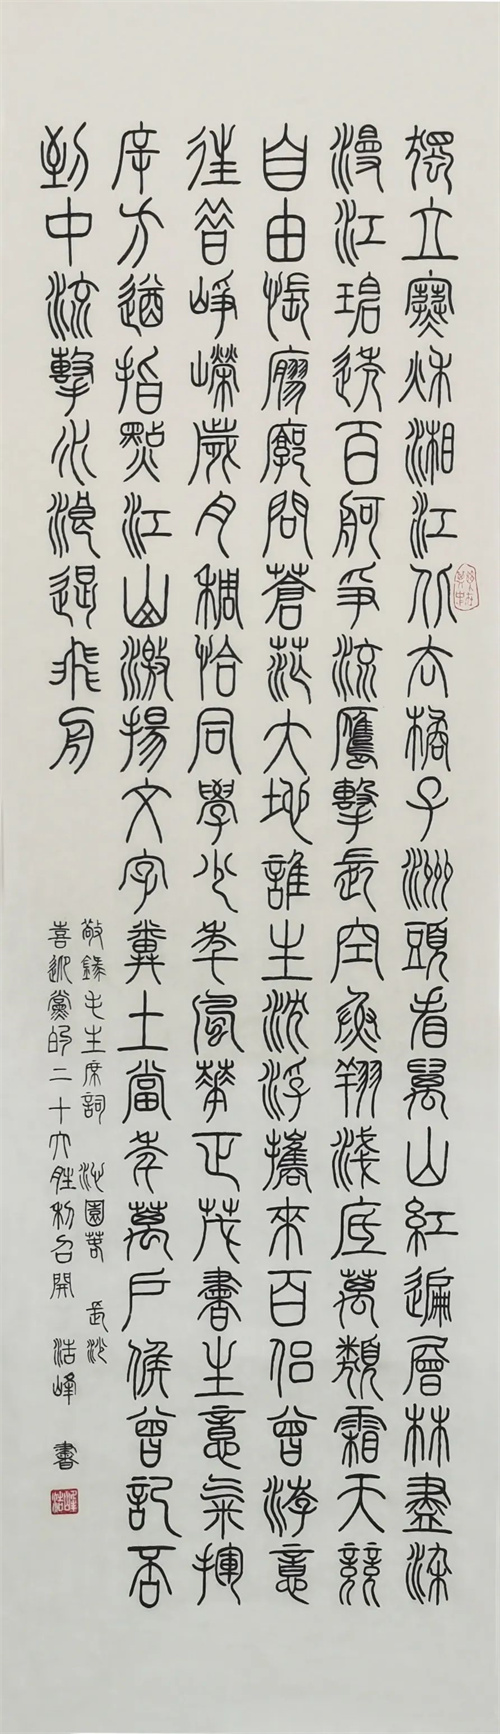 獨立寒秋湘江北去橘子洲頭看萬山紅遍層林盡染
漫江碧透百舸爭流鷹擊長空魚翔淺底萬類霜天競
自由悵廖廓問蒼茫大地誰主沈浮攜來百侶曾游意
往昔崢嶸歲月稠恰同學少年風華正茂書生意氣揮
斥方遒指點江山激揚文字糞土當年萬戶侯曾記否
到中流擊水浪遏飛舟
敬錄毛主席詞 沁園春 長沙
喜迎黨的二十大勝利召開 浩峰 書